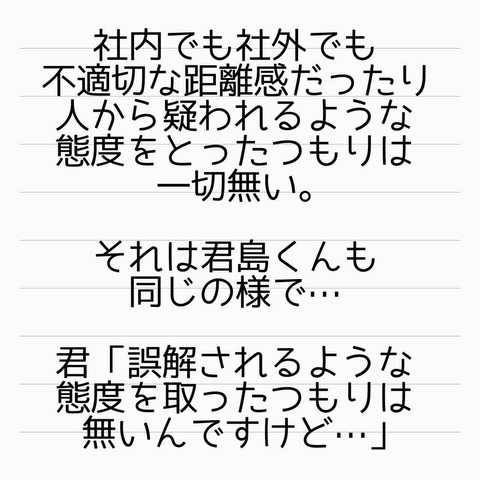 社内でも社外でも
不適切な距離感だったり
人から疑われるような
態度をとったつもりは
一切無い。
それは君島くんも
同じの様で…
君「誤解されるような
態度を取ったつもりは
無いんですけど…」